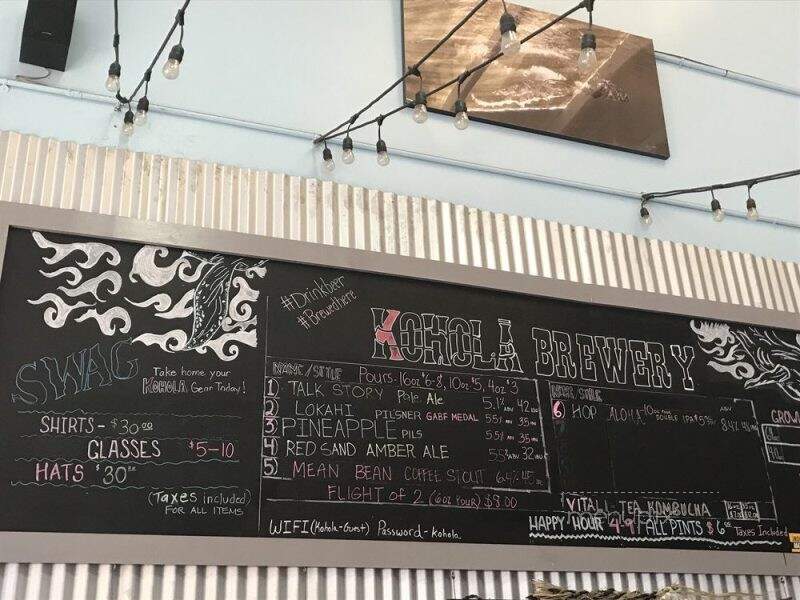 #Drinkbeer
#Brewedhere
KOHOLA BREWERY
SWAG
Take home your
KOHOLA Gear Today!
SHIRTS - $30.00
GLASSES $5-10
HATS $30
(Taxes included)
FOR ALL ITEMS
NAME/STYLE POURS - 16oz $6-8, 10oz $5, 4oz $3
1 TALK STORY Pale Ale 5.1% ABV 42
2 LOKAHI PILSNER GABF MEDAL 5.5% 35
3 PINEAPPLE PILS 5.5% 35
4 RED SAND AMBER ALE 5.5% 32
5 MEAN BEAN COFFEE STOUT 6.4% 45
FLIGHT OF 2 (6oz Pour) $8.00
WIFI (Kohola-Guest) Password - kohola
6 HOP ALOHA 10oz DOUBLE IPA 8.4%
TEA KOMBUCHA
HAPPY HOUR 4-9 ALL PINTS $6 Taxes Included